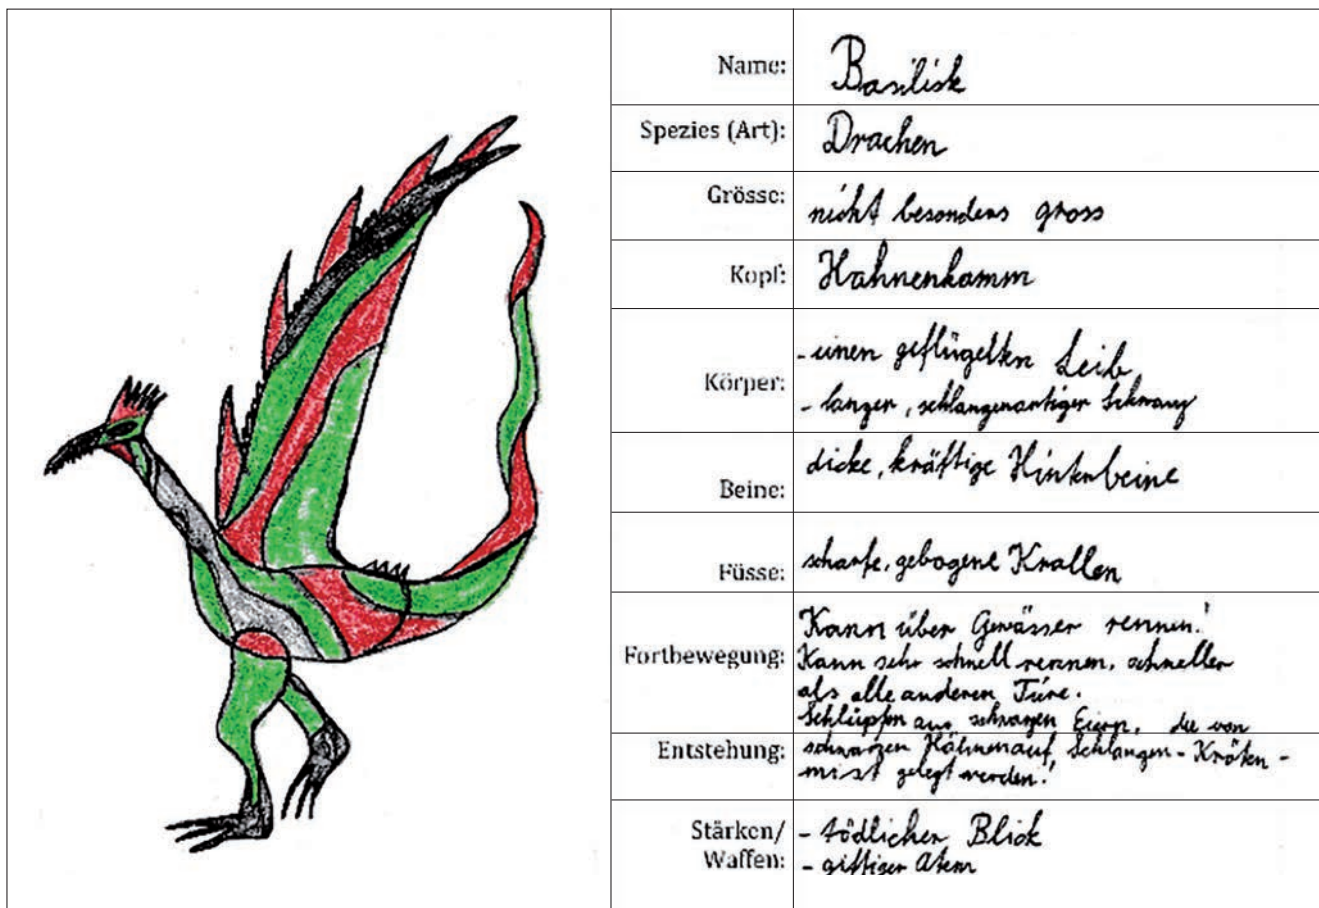 Name: Basilisk
Spezies (Art): Drachen
Grösse: nicht besonders gross
Kopf: Hahnenkamm
Körper: - einen geflügelten Leib
- langer, schlangenartiger Schwanz
Beine: dicke, kräftige Hinterbeine
Füsse: scharfe, gebogene Krallen
Fortbewegung: Kann über Gewässer rennen!
Kann sehr schnell rennen, schneller
als alle anderen Türe.
Entstehung: Schlüpfen aus schwarzen Eiern, die von
schwarzen Hähnen auf Schlangen - Kröten -
mist gelegt werden!
Stärken/
Waffen: - tödlicher Blick
- giftiger Atem